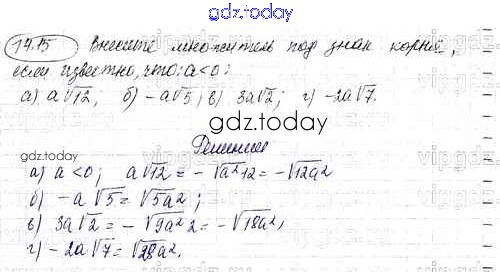 gdz.today
14.15 Внесите множитель под знак корня,
если известно, что: a<0:
а) a√12; б) -a√5; в) 3a√2; г) -2a√7.
gdz.today
Решение
а) a<0; a√12 = -√a²12 = -√12a²
б) -a√5 = √5a²;
в) 3a√2 = -√9a²2 = -√18a²;
г) -2a√7 = √28a².
gdz.today